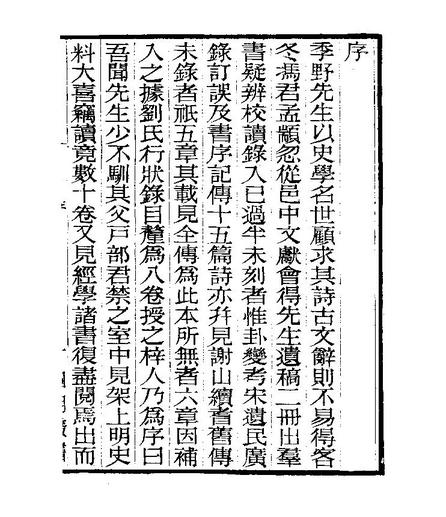 序
季野先生以史學名世顧求其詩古文辭則不易得客
冬馮君孟顓忽從邑中文獻會得先生遺稿二冊出羣
書疑辨校讀錄入已過半未刻者惟卦變考宋遺民廣
錄訂誤及書序記傳十五篇詩亦幷見謝山續耆舊傳
未錄者祇五章其載見全傳爲此本所無者六章因補
入之據劉氏行狀錄目釐爲八卷授之梓人乃爲序曰
吾聞先生少不馴其父戸部君禁之室中見架上明史
料大喜竊讀竟數十卷又見經學諸書復盡閱焉出而